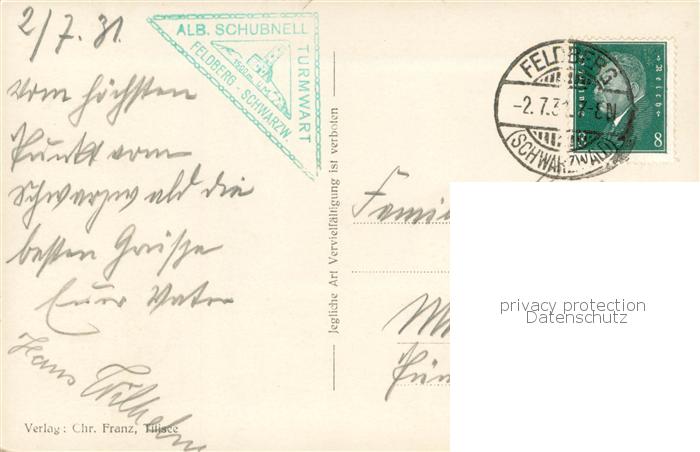 2/7.31.
ALB. SCHUBNELL
TURMWART
FELDBERG - SCHWARZW.
1500m ü.M.
vom höchsten
Punkt vom
Schwarzwald die
besten Grüsse
Euer Vater
Hans Wilhelm
Verlag: Chr. Franz, Titisee
Jegliche Art Vervielfältigung ist verboten
FELDBERG
-2.7.31. 7-8N
(SCHWARZWALD)
Deutsches Reich
8
Famil
privacy protection
Datenschutz